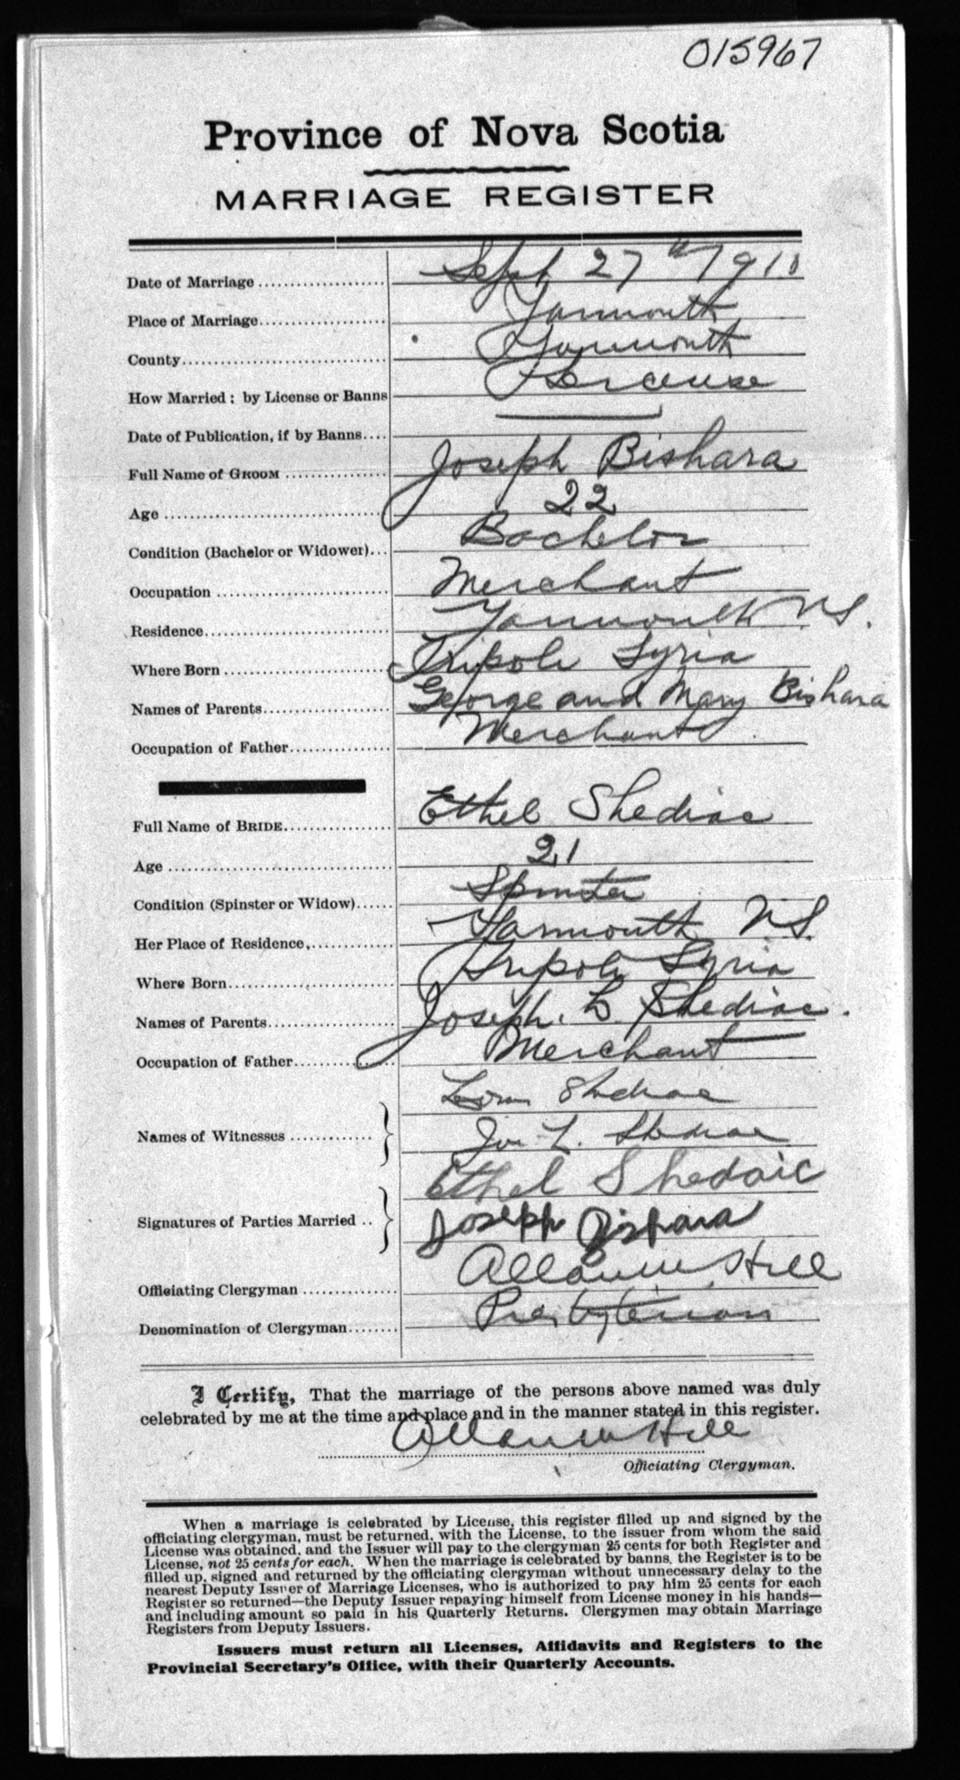 015967
Province of Nova Scotia
MARRIAGE REGISTER
Date of Marriage .................... Sept 27th 1910
Place of Marriage.................... Yarmouth
County.................... Yarmouth
How Married : by License or Banns License
Date of Publication, if by Banns....
Full Name of GROOM .................... Joseph Bishara
Age .................... 22
Condition (Bachelor or Widower)... Bachelor
Occupation .................... Merchant
Residence.................... Yarmouth N.S.
Where Born .................... Tripoli Syria
Names of Parents.................... George and Mary Bishara
Occupation of Father.................... Merchant
Full Name of BRIDE.................... Ethel Shediac
Age .................... 21
Condition (Spinster or Widow)...... Spinster
Her Place of Residence.............. Yarmouth N.S.
Where Born.................... Tripoli Syria
Names of Parents.................... Joseph. L. Shediac.
Occupation of Father.................... Merchant
Shediac
Names of Witnesses ............ Joe L. Shediac
Ethel Shedaic
Signatures of Parties Married .. Joseph Bishara
Officiating Clergyman .............. Allan W Hill
Denomination of Clergyman........ Presbyterian
I Certify, That the marriage of the persons above named was duly
celebrated by me at the time and place and in the manner stated in this register.
Allan W Hill
Officiating Clergyman.
When a marriage is celebrated by License, this register filled up and signed by the
officiating clergyman, must be returned, with the License, to the issuer from whom the said
License was obtained, and the Issuer will pay to the clergyman 25 cents for both Register and
License, not 25 cents for each. When the marriage is celebrated by banns, the Register is to be
filled up, signed and returned by the officiating clergyman without unnecessary delay to the
nearest Deputy Issuer of Marriage Licenses, who is authorized to pay him 25 cents for each
Register so returned—the Deputy Issuer repaying himself from License money in his hands—
and including amount so paid in his Quarterly Returns. Clergymen may obtain Marriage
Registers from Deputy Issuers.
Issuers must return all Licenses, Affidavits and Registers to the
Provincial Secretary's Office, with their Quarterly Accounts.